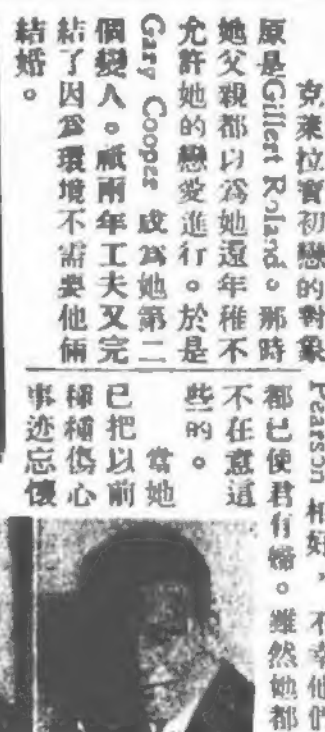 克萊拉寶初戀的對象
原是Gilbert Roland。那時
她父親都以爲她還年稚不
允許她的戀愛進行。於是
Gary Cooper 成爲她第二
個變人。祇兩年工夫又完
結了因爲環境不需要他倆
結婚。
Pearson 相好，不幸他們
都已使君有婦。雖然她都
不在意這
些的。
當她
已把以前
種種傷心
事迹忘懷